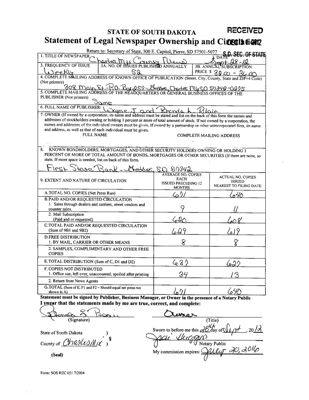 STATE OF SOUTH DAKOTA
RECEIVED
Statement of Legal Newspaper Ownership and Circulation
Return to: Secretary of State, 500 E. Capitol, Pierre, SD 57501-5077
S.D. SEC. OF STATE
1. TITLE OF NEWSPAPER
2. DATE
Charles Mix County News
3. FREQUENCY OF ISSUE
3A. NO. OF ISSUES PUBLISHED ANNUALLY
3B. ANNUAL SUBSCRIPTION
Weekly
52
PRICE $
4. COMPLETE MAILING ADDRESS OF KNOWN OFFICE OF PUBLICATION (Street, City, County, State and ZIP+4 Code)
(Not printers)
5. COMPLETE MAILING ADDRESS OF THE HEADQUARTERS OR GENERAL BUSINESS OFFICES OF THE
PUBLISHER (Not printer)
Same
6. FULL NAME OF PUBLISHER:
7. OWNER (If owned by a corporation, its name and address must be stated and list on the back of this form the names and
addresses of stockholders owning or holding 1 percent or more of total amount of stock. If not owned by a corporation, the
names and addresses of the individual owners must be given. If owned by a partnership or other unincorporated firm, its name
and address, as well as that of each individual must be given.
FULL NAME
COMPLETE MAILING ADDRESS
8. KNOWN BONDHOLDERS, MORTGAGEES, AND OTHER SECURITY HOLDERS OWNING OR HOLDING 1
PERCENT OR MORE OF TOTAL AMOUNT OF BONDS, MORTGAGES OR OTHER SECURITIES (If there are none, so
state. If more space is needed, list on back of this form.
9. EXTENT AND NATURE OF CIRCULATION
AVERAGE NO. COPIES
EACH
ISSUED PRECEDING 12
MONTHS
ACTUAL NO. COPIES
ISSUED
NEAREST TO FILING DATE
A. TOTAL NO. COPIES (Net Press Run)
B. PAID AND/OR REQUESTED CIRCULATION
1. Sales through dealers and carriers, street vendors and
counter sales
9
11
2. Mail Subscription
(Paid and or requested)
620
608
C. TOTAL PAID AND/OR REQUESTED CIRCULATION
(Sum of 9B1 and 9B2)
629
619
D. FREE DISTRIBUTION
1. BY MAIL, CARRIER OR OTHER MEANS
8
8
2. SAMPLES, COMPLIMENTARY AND OTHER FREE
COPIES
E. TOTAL DISTRIBUTION (Sum of C, D1 and D2)
637
627
F. COPIES NOT DISTRIBUTED
1. Office use, left over, unaccounted, spoiled after printing
34
13
2. Return from News Agents
G. TOTAL (Sum of E, F1 and F2 – Should equal net press run
shown in A)
Statement must be signed by Publisher, Business Manager, or Owner in the presence of a Notary Public
I swear that the statements made by me are true, correct, and complete:
Owner
(Signature)
(Title)
State of South Dakota
)
§
County of Charles Mix )
(Seal)
Sworn to before me this day of Sept, 2012
Notary Public
My commission expires: July 20, 2016
Form: SOS REC 051 7/2004